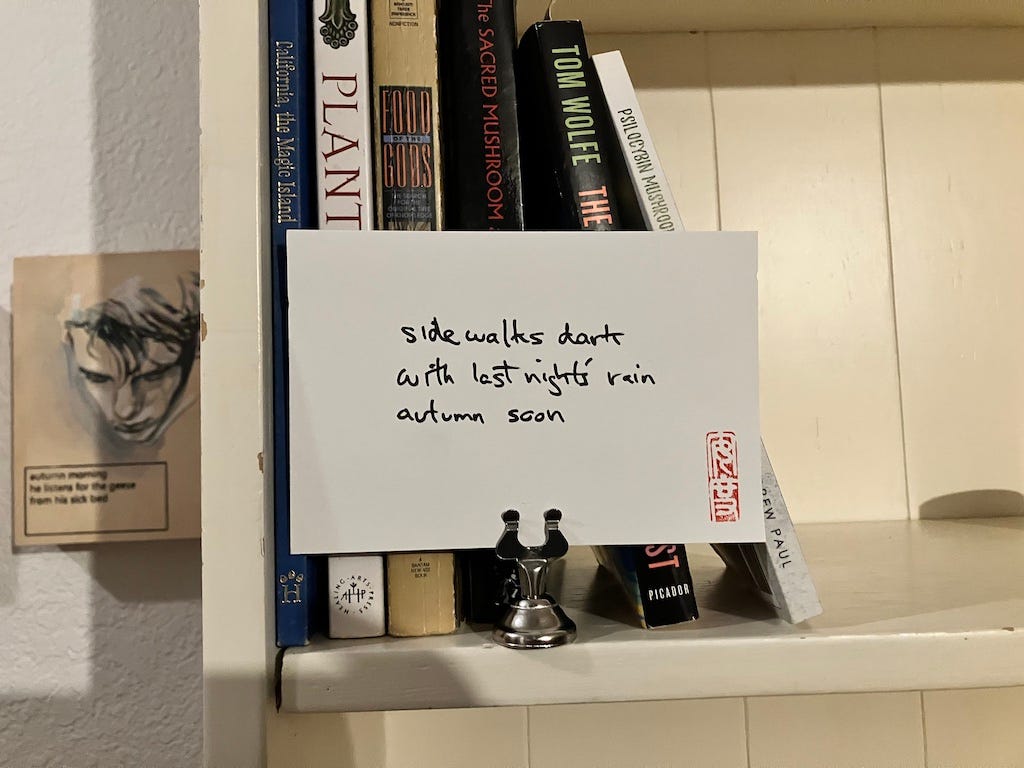 California, the Magic Island
PLANT
NONFICTION
FOOD
OF THE
GODS
THE SEARCH
FOR THE
ORIGINAL TREE
OF KNOWLEDGE
The SACRED MUSHROOM
TOM WOLFE THE
PSILOCYBIN MUSHROO
sidewalks dark
with last nights' rain
autumn soon
autumn morning
he listens for the geese
from his sick bed
H
HEALING·ARTS·PRESS
BANTAM
NEW AGE
BOOK
ST
PICADOR
DREW PAUL